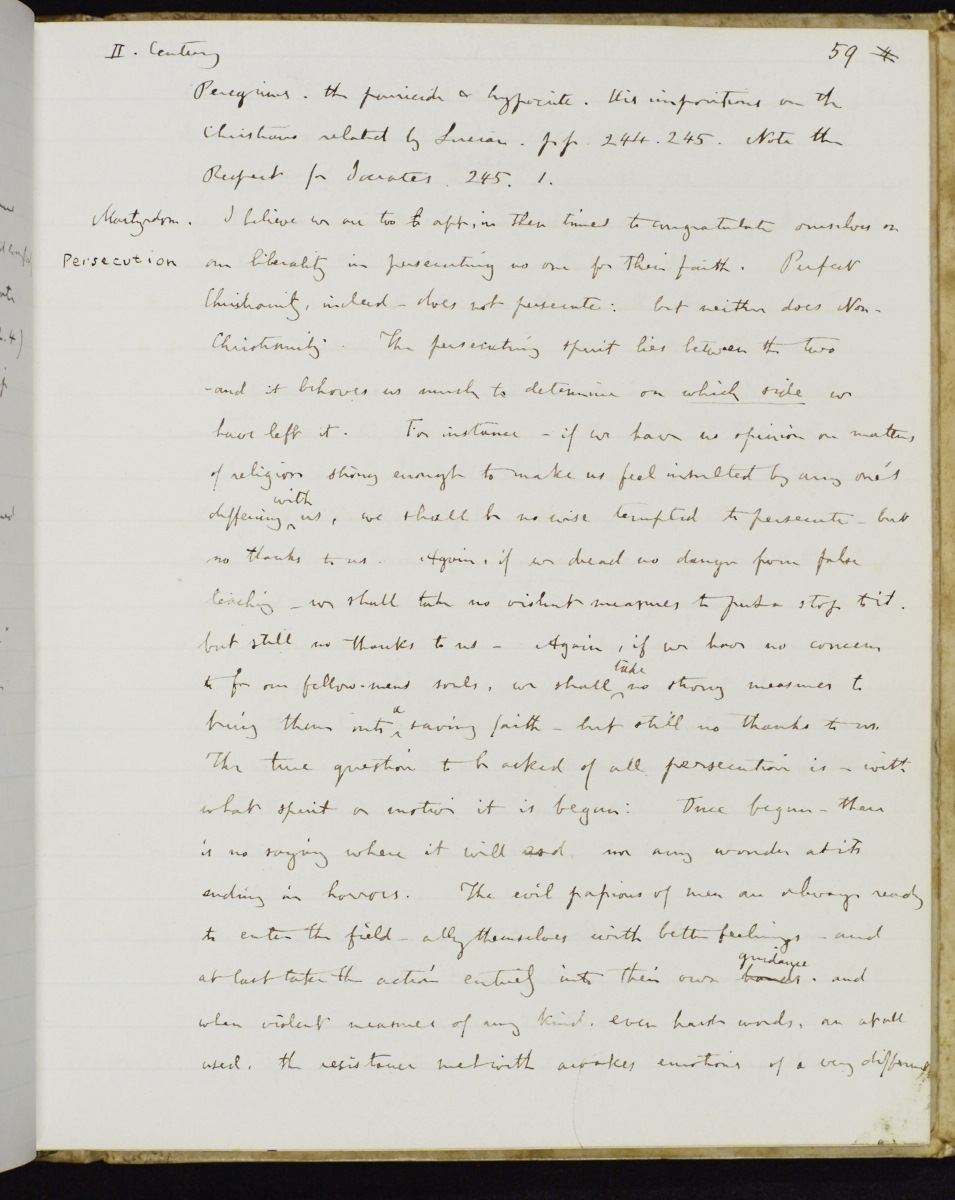 II. Century 59
Peregrinus. the parricide & hypocrite. His impositions on the
Christians related by Lucian. pp. 244. 245. Note the
Respect for Socrates. 245. 1.
Martyrdom. I believe we are too apt, in these times to congratulate ourselves on
Persecution our liberality in persecuting no one for their faith. Perfect
Christianity, indeed - does not persecute: but neither does Non-
Christianity. The persecuting spirit lies between the two
-and it behoves us much to determine on which side we
have left it. For instance - if we have no opinion on matters
of religion strong enough to make us feel insulted by any one's
differing with us, we shall be no wise tempted to persecute - but
no thanks to us. Again, if we dread no danger from false
teaching - we shall take no violent measures to put a stop to it.
but still no thanks to us - Again, if we have no concern
to for our fellow-mens souls, we shall take no strong measures to
bring them into a saving faith - but still no thanks to us.
The true question to be asked of all persecution is - with
what spirit or motive it is begun: Once begun - there
is no saying where it will end nor any wonder at its
ending in horrors. The evil passions of men are always ready
to enter the field - ally themselves with better feelings - and
at last take the action entirely into their own hands guidance. and
when violent measures of any kind. even harsh words, are at all
used. the resistance met with awakes emotions of a very different